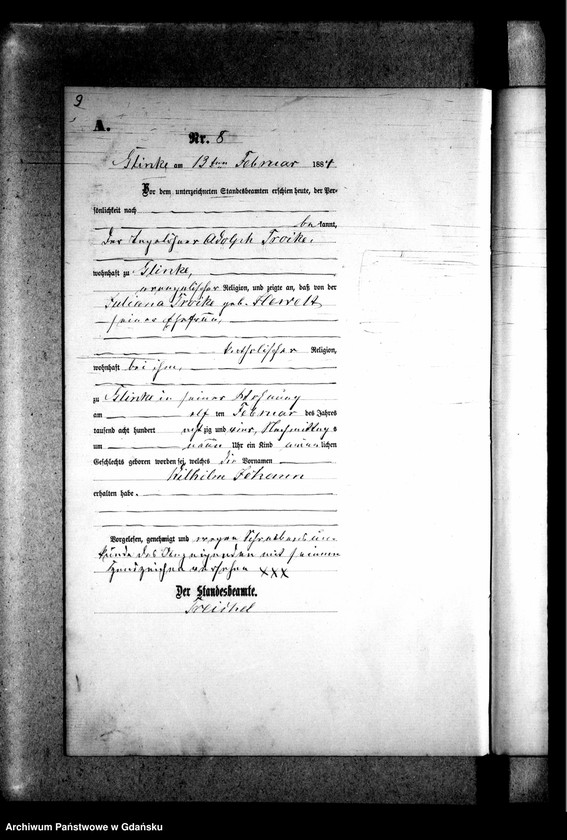 9
A.
Nr. 8
Glinke am 13ten Februar 1884
Vor dem unterzeichneten Standesbeamten erschien heute, der Per-
sönlichkeit nach
bekannt,
der Adolph Troike,
wohnhaft zu Glinke,
evangelischer Religion, und zeigte an, daß von der
Juliana Troike geb.
seiner Ehefrau,
katholischer Religion,
wohnhaft bei ihm,
zu Glinke in seiner Wohnung
am elf ten Februar des Jahres
tausend acht hundert achtzig und vier, Nachmittags
um neun Uhr ein Kind männlichen
Geschlechts geboren worden sei, welches die Vornamen
Wilhelm Johann
erhalten habe.
Vorgelesen, genehmigt und wegen Schreibensun-
kunde des Anzeigenden mit seinem
Handzeichen versehen XXX
Der Standesbeamte.
Treichel
Archiwum Państwowe w Gdańsku